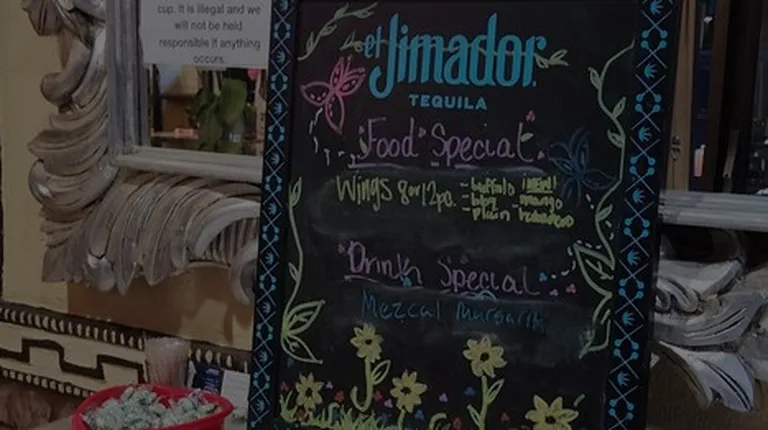 cup. It is illegal and we
will not be held
responsible if anything
occurs.
el Jimador
TEQUILA
Food Special
Wings 8 or 12pc. - buffalo new!
- bbq - mango
- plain habanero
Drink Special
Mezcal Margarita